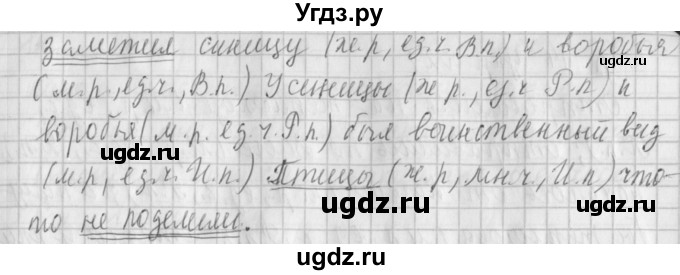 Угдз.ру
заметил синицу (ж.р, ед.ч. В.п,) и воробья
(м.р., ед.ч., В.п.) У синицы (ж р., ед.ч Р.п) и
воробья (м.р. ед.ч. Р.п.) был воинственный вид
(м.р, ед.ч. И.п.) Птицы (ж.р, мн.ч., И.п) что-
то не поделили.
ugdz.ru
ugdz.ru
ugdz.ru
ugdz.ru
ugdz.ru
ugdz.ru